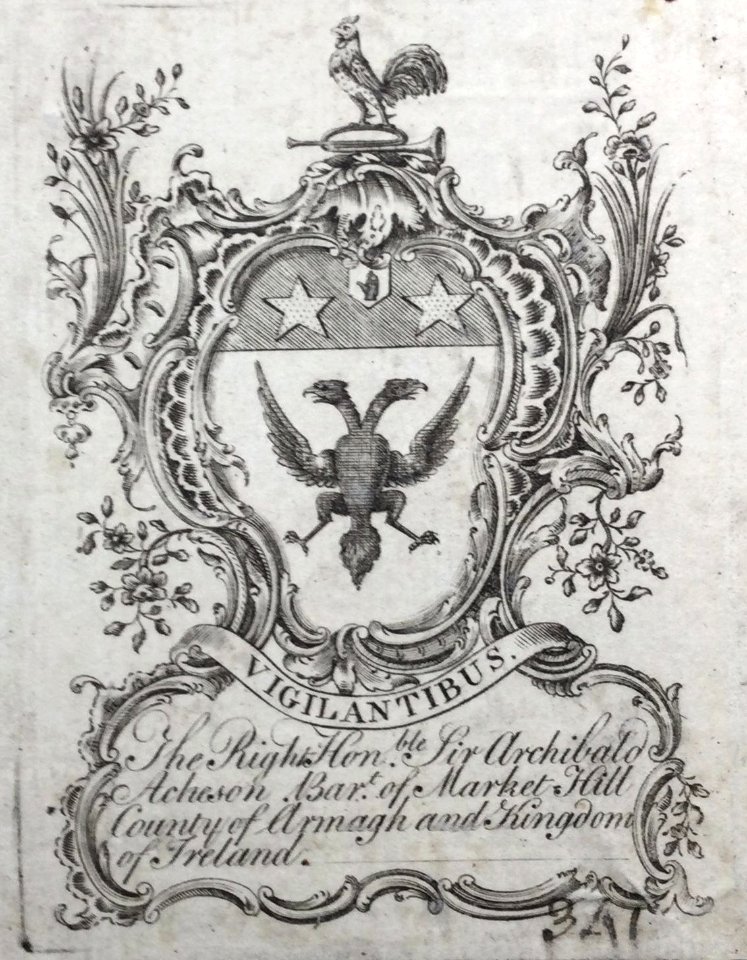 VIGILANTIBUS.
The Right Hon.ble Sir Archibald
Acheson Bar.t of Market-Hill
County of Armagh and Kingdom
of Ireland.